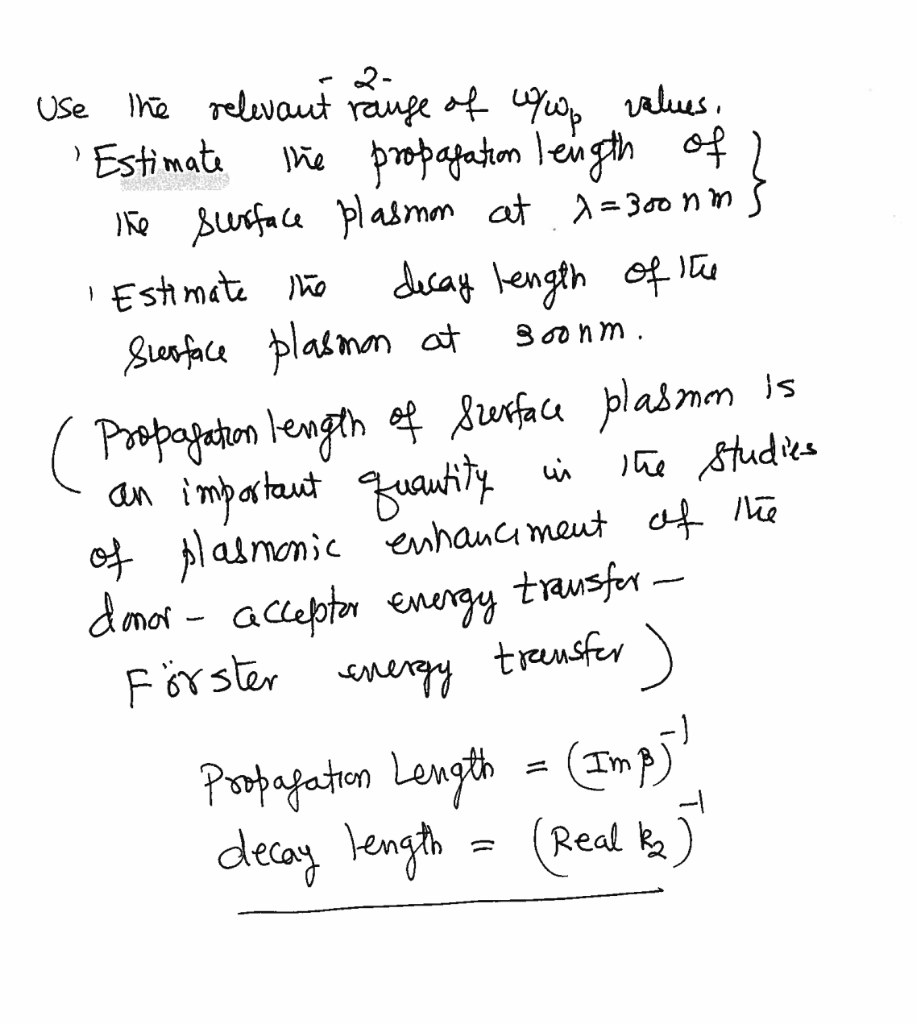 - 2 -
Use the relevant range of ω/ωp values.
' Estimate the propagation length of
the surface plasmon at λ = 300 nm }
' Estimate the decay length of the
surface plasmon at 300 nm.
( Propagation length of surface plasmon is
an important quantity in the studies
of plasmonic enhancement of the
donor - acceptor energy transfer -
Förster energy transfer )
Propagation Length = (Im β)⁻¹
decay length = (Real k₂)⁻¹